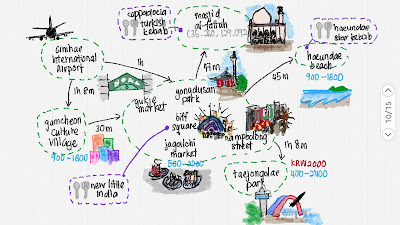 cappadocia
turkish
kebab
masjid
al-fattah
(35.260, 129.092)
haeundae
star kebab
gimhae
international
airport
1h
47m
45m
haeundae
beach
900-1800
1h 8m
gukje
market
yongdusan
park
gamcheon
culture
village
900-1800
30m
biff
square
nampodong
street
jagalchi
market
500-2200
1h 8m
new little
india
taejongdae
park
KRW2000
400-2400
10/15